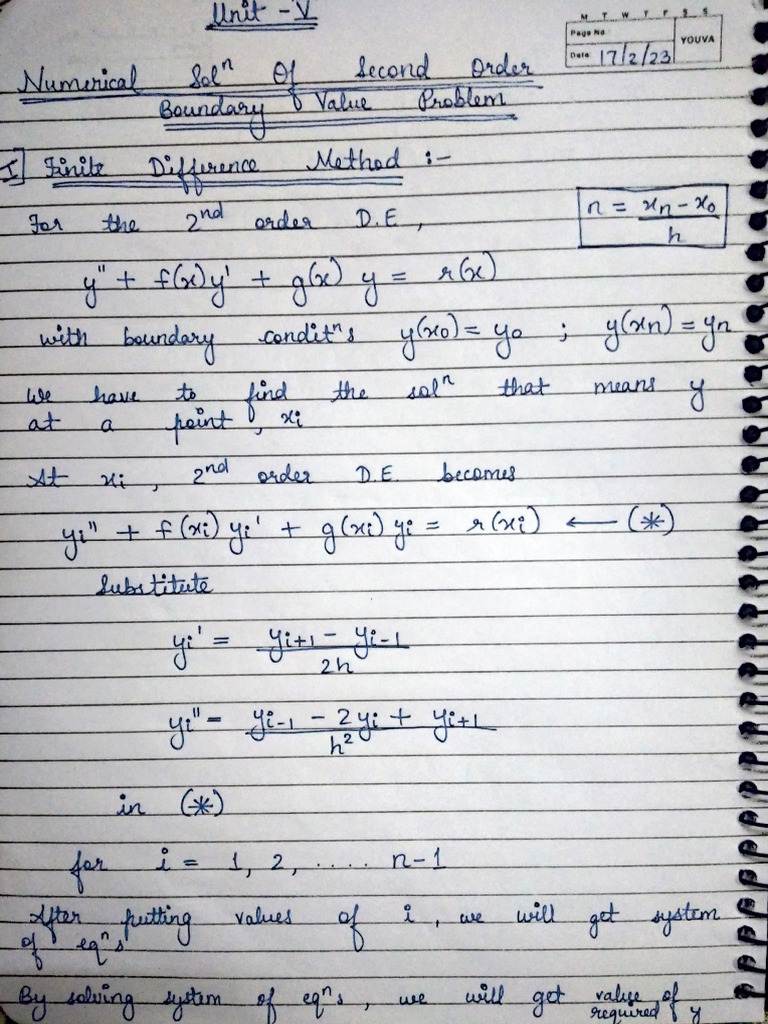 Unit - V
M T W T F S S
Page No
YOUVA
Date 17/2/23
Numerical Solⁿ Of Second Order
Boundary Value Problem
I] Finite Difference Method :-
For the 2nd order D.E,
n = xn - x0 / h
y" + f(x)y' + g(x) y = r(x)
with boundary conditⁿs y(x0) = y0 ; y(xn) = yn
We have to find the solⁿ that means y
at a point, xi
At xi, 2nd order D.E. becomes
yi" + f(xi) yi' + g(xi) yi = r(xi) ← (*)
Substitute
yi' = yi+1 - yi-1 / 2h
yi" = yi-1 - 2yi + yi+1 / h²
in (*)
for i = 1, 2, .... n-1
After putting values of i, we will get system
of eqⁿs
By solving system of eqⁿs, we will get value of
required y